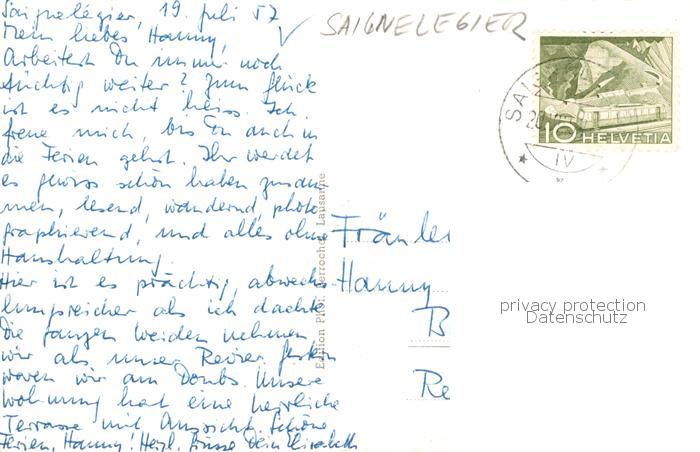 Saignelégier, 19. Juli 57
Mein liebes Hanny,
Arbeitest Du immer noch
tüchtig weiter? Zum Glück
ist es nicht heiss. Ich
freue mich, bis Du auch in
die Ferien gehst. Ihr werdet
es gewiss schön haben zusam-
men, lesend, wandernd, photo-
graphierend, und alles ohne
Haushaltung.
Hier ist es prächtig, abwechs-
lungsreicher als ich dachte
Die ganzen Weiden nehmen
wir als unser Revier. Gestern
waren wir am Doubs. Unsere
Wohnung hat eine herrliche
Terrasse mit Aussicht. Schöne
Ferien, Hanny! Herzl. Grüsse Dein Elisabeth
SAIGNELEGIER
10 HELVETIA
SAIG
IV
Edition Phot. Perrochet Lausanne
Fräulei
Hanny
B
Re
privacy protection
Datenschutz